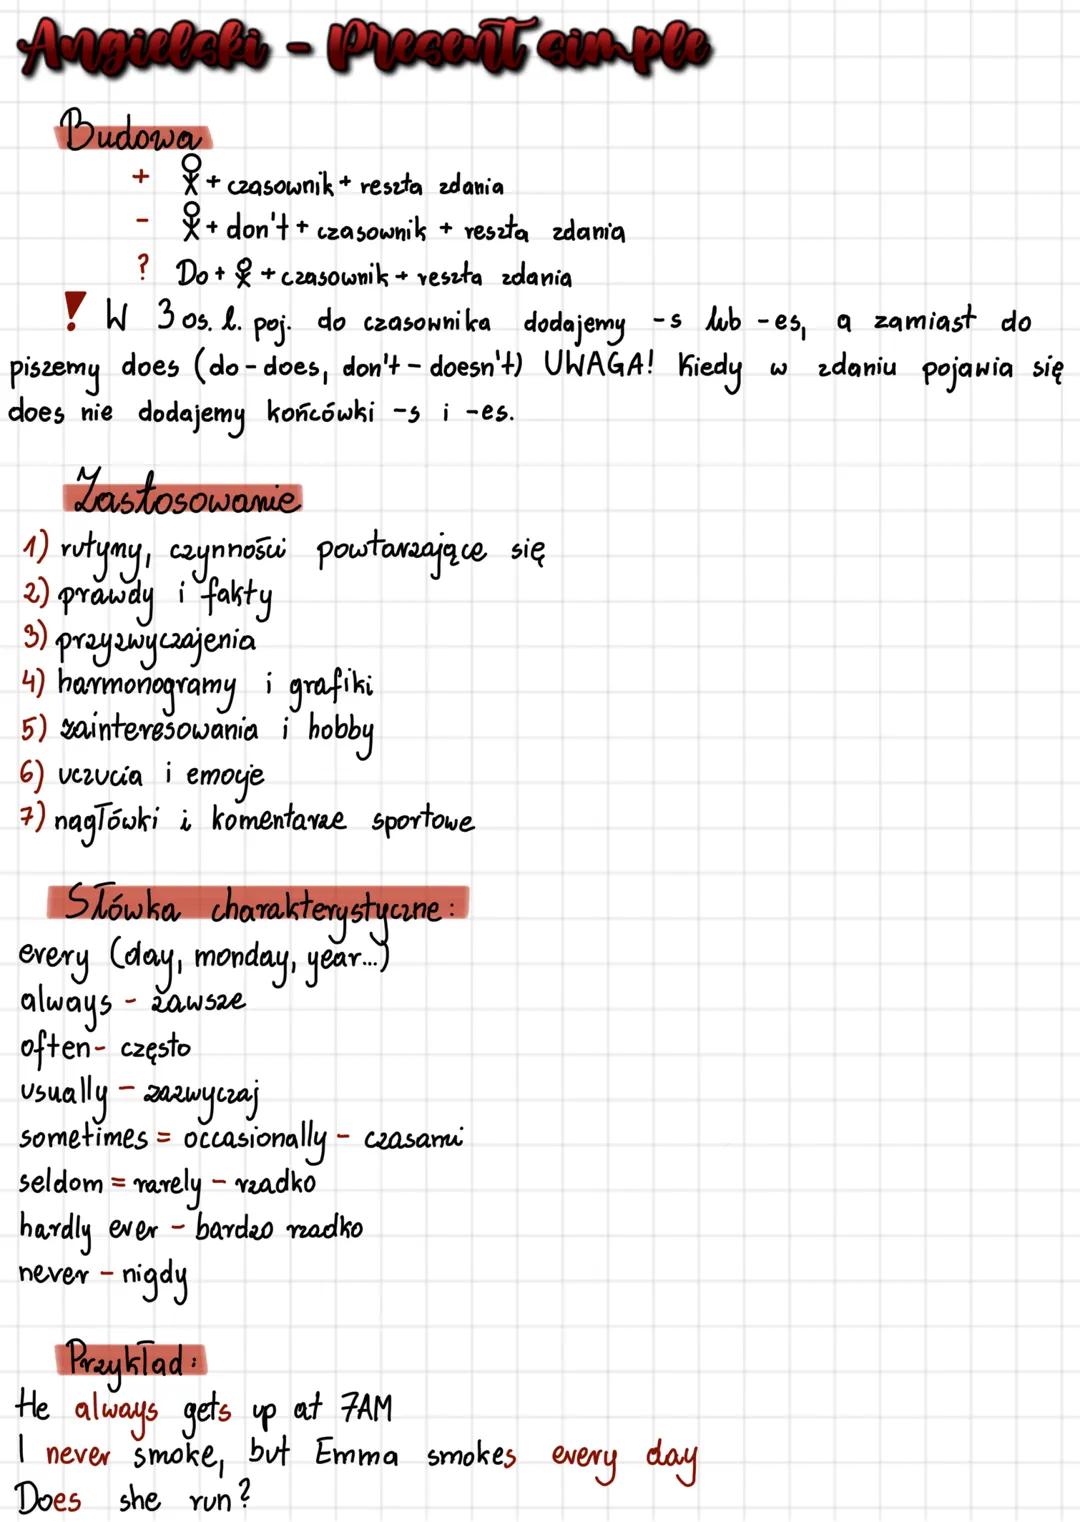 Angielski - Present simple
Budowa
+ + czasownik + reszta zdania
- + don't + czasownik + reszta zdania
? Do + + czasownik + reszta zdania
! W 3 os. l. poj. do czasownika dodajemy -s lub -es, a zamiast do
piszemy does (do - does, don't - doesn't) UWAGA! Kiedy w zdaniu pojawia się
does nie dodajemy końcówki -s i -es.
Zastosowanie
1) rutyny, czynności powtarzające się
2) prawdy i fakty
3) przyzwyczajenia
4) harmonogramy i grafiki
5) zainteresowania i hobby
6) uczucia i emocje
7) nagłówki i komentarze sportowe
Słówka charakterystyczne:
every (day, monday, year...)
always - zawsze
often - często
usually - zazwyczaj
sometimes = occasionally - czasami
seldom = rarely - rzadko
hardly ever - bardzo rzadko
never - nigdy
Przykład:
He always gets up at 7AM
I never smoke, but Emma smokes every day
Does she run?